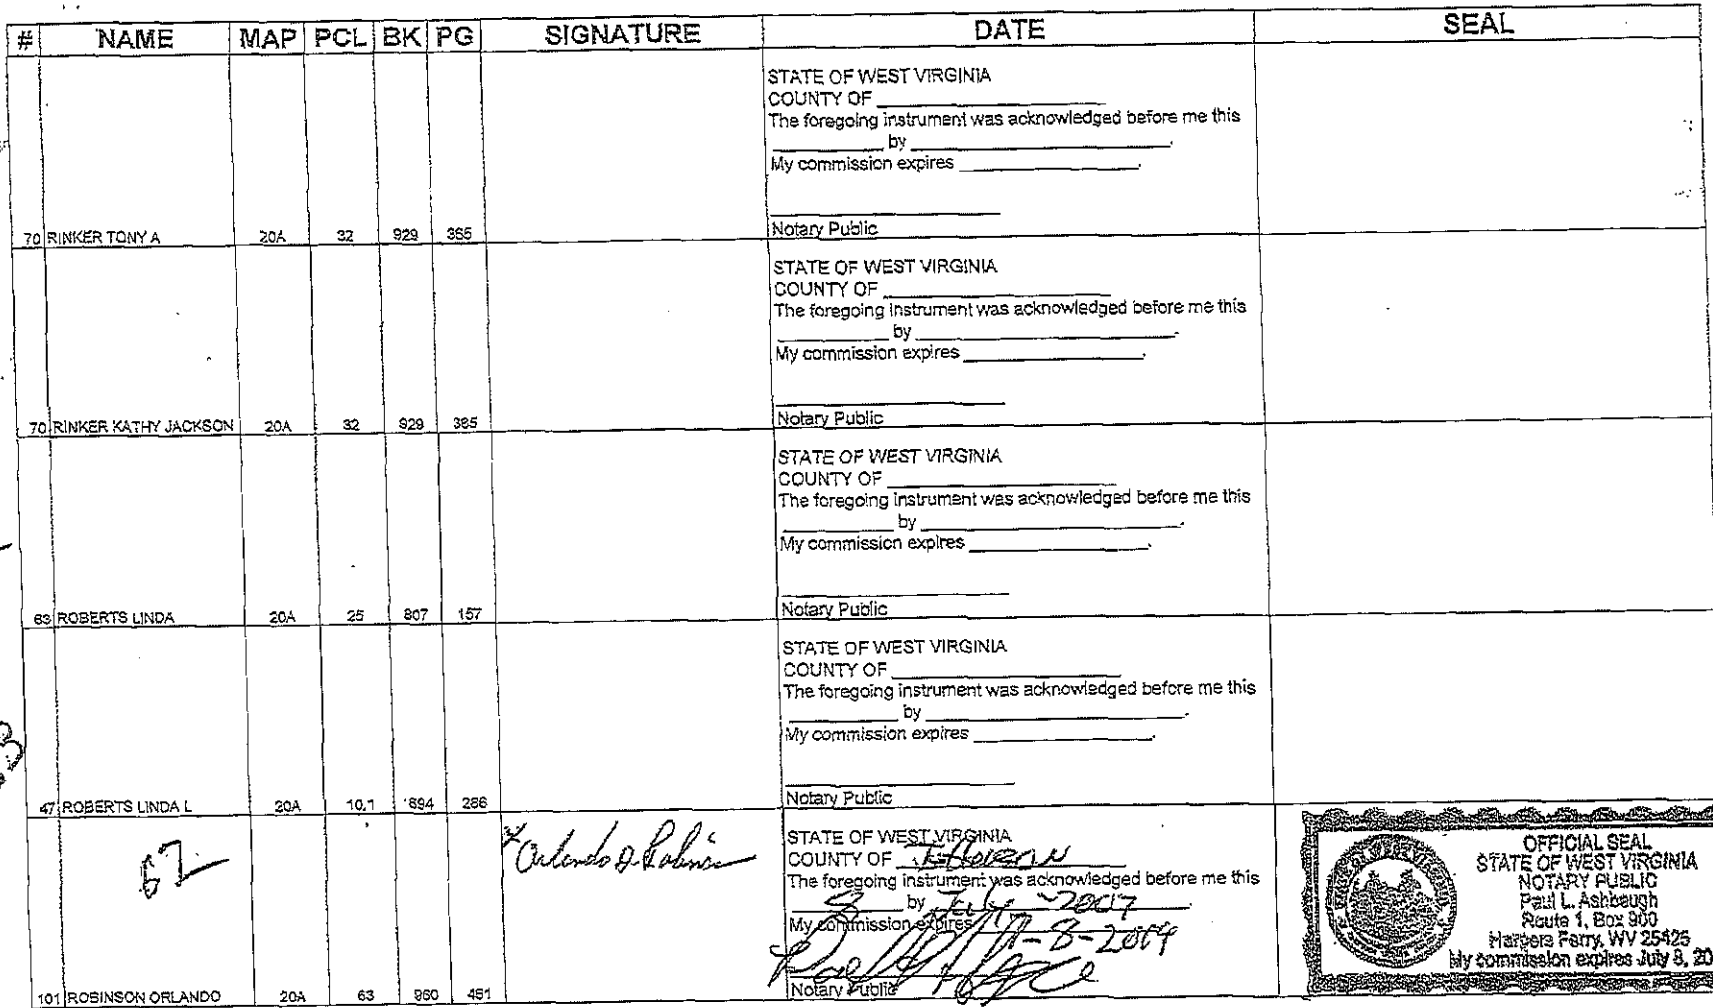 # NAME MAP PCL BK PG SIGNATURE DATE SEAL
STATE OF WEST VIRGINIA
COUNTY OF
The foregoing instrument was acknowledged before me this
by
My commission expires
Notary Public
70 RINKER TONY A 20A 32 929 385
STATE OF WEST VIRGINIA
COUNTY OF
The foregoing instrument was acknowledged before me this
by
My commission expires
Notary Public
70 RINKER KATHY JACKSON 20A 32 929 385
STATE OF WEST VIRGINIA
COUNTY OF
The foregoing instrument was acknowledged before me this
by
My commission expires
Notary Public
63 ROBERTS LINDA 20A 25 807 157
STATE OF WEST VIRGINIA
COUNTY OF
The foregoing instrument was acknowledged before me this
by
My commission expires
Notary Public
47 ROBERTS LINDA L 20A 10.1 894 286
62
Orlando D. Robinson
STATE OF WEST VIRGINIA
COUNTY OF Jefferson
The foregoing instrument was acknowledged before me this
8 by July - 2007
My commission expires
Notary Public
101 ROBINSON ORLANDO 20A 63 960 451
OFFICIAL SEAL
STATE OF WEST VIRGINIA
NOTARY PUBLIC
Paul L. Ashbaugh
Route 1, Box 900
Harpers Ferry, WV 25425
My commission expires July 8, 20